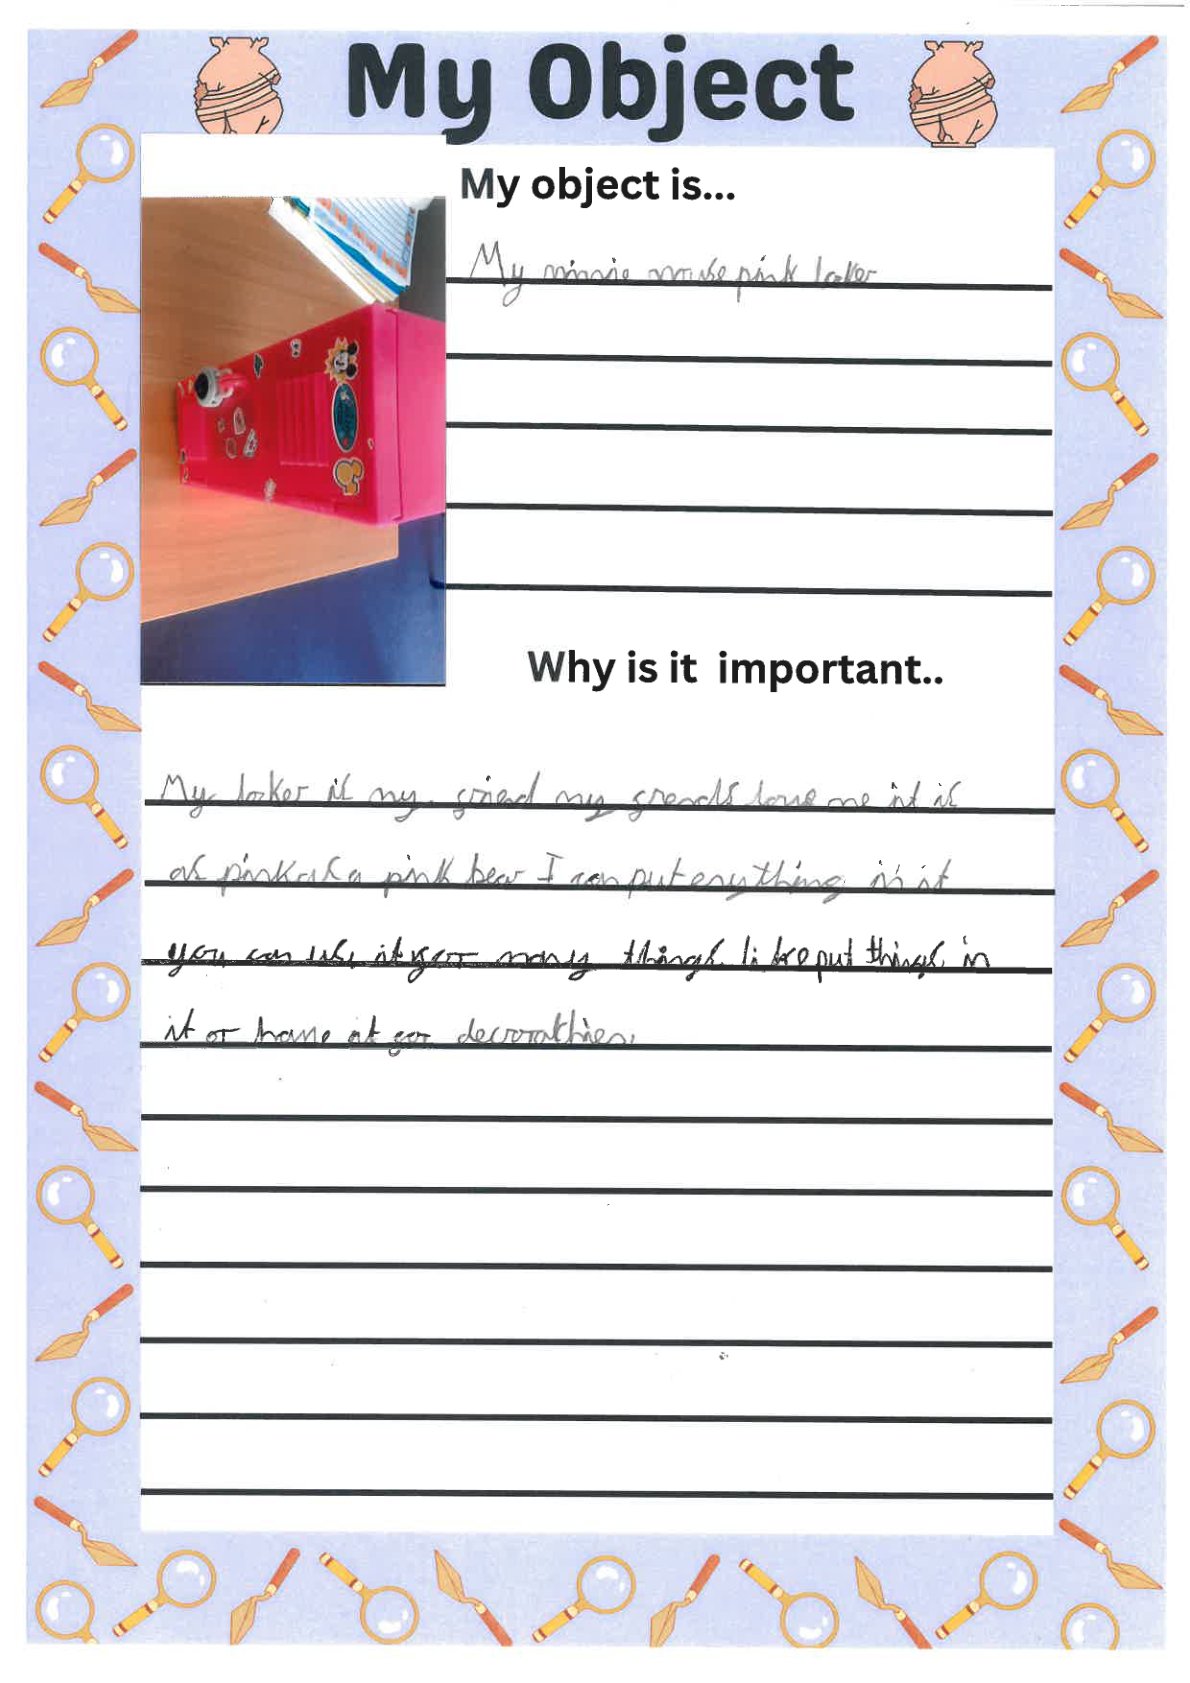 My Object
My object is...
My minnie mouse pink loker
Why is it  important..
My loker is my friend my freads love me it is
as pink as a pink bear I can put enything in it
you can use it for many things like put things in
it or have it for decorathien.